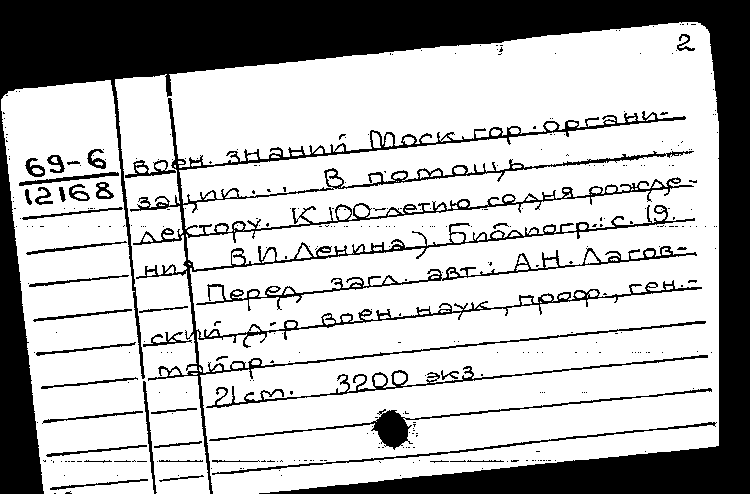 2
69-6
12168
воен. знаний Моск. гор. органи-
зации... В помощь
лектору. К 100-летию со дня рожде-
ния В.И. Ленина). Библиогр.: с. 19.
Перед загл. авт.: А.Н. Лагов-
ский, д-р воен. наук, проф., ген.-
майор.
21 см. 3200 экз.